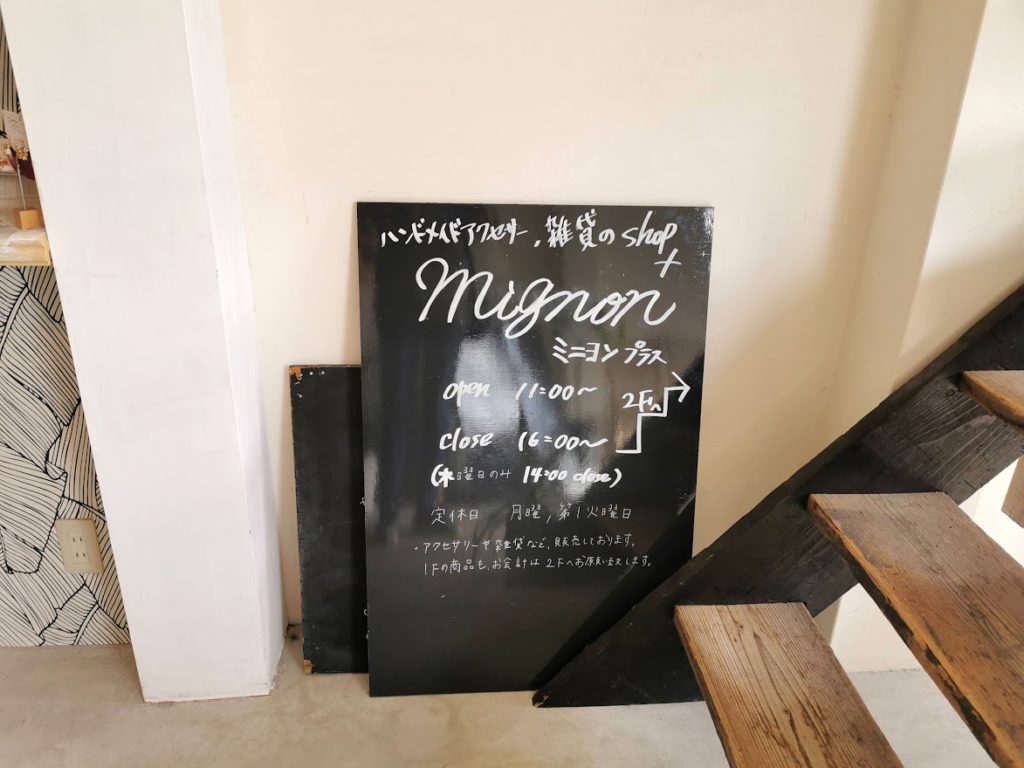 ハンドメイドアクセサリー, 雑貨のshop
mignon+
ミニヨンプラス
open 11:00〜
close 16:00〜
2Fへ
(木曜日のみ 14:00 close)
定休日 月曜, 第1火曜日
・アクセサリーや雑貨など、販売しております。
1Fの商品も、お会計は2Fへお願い致します。